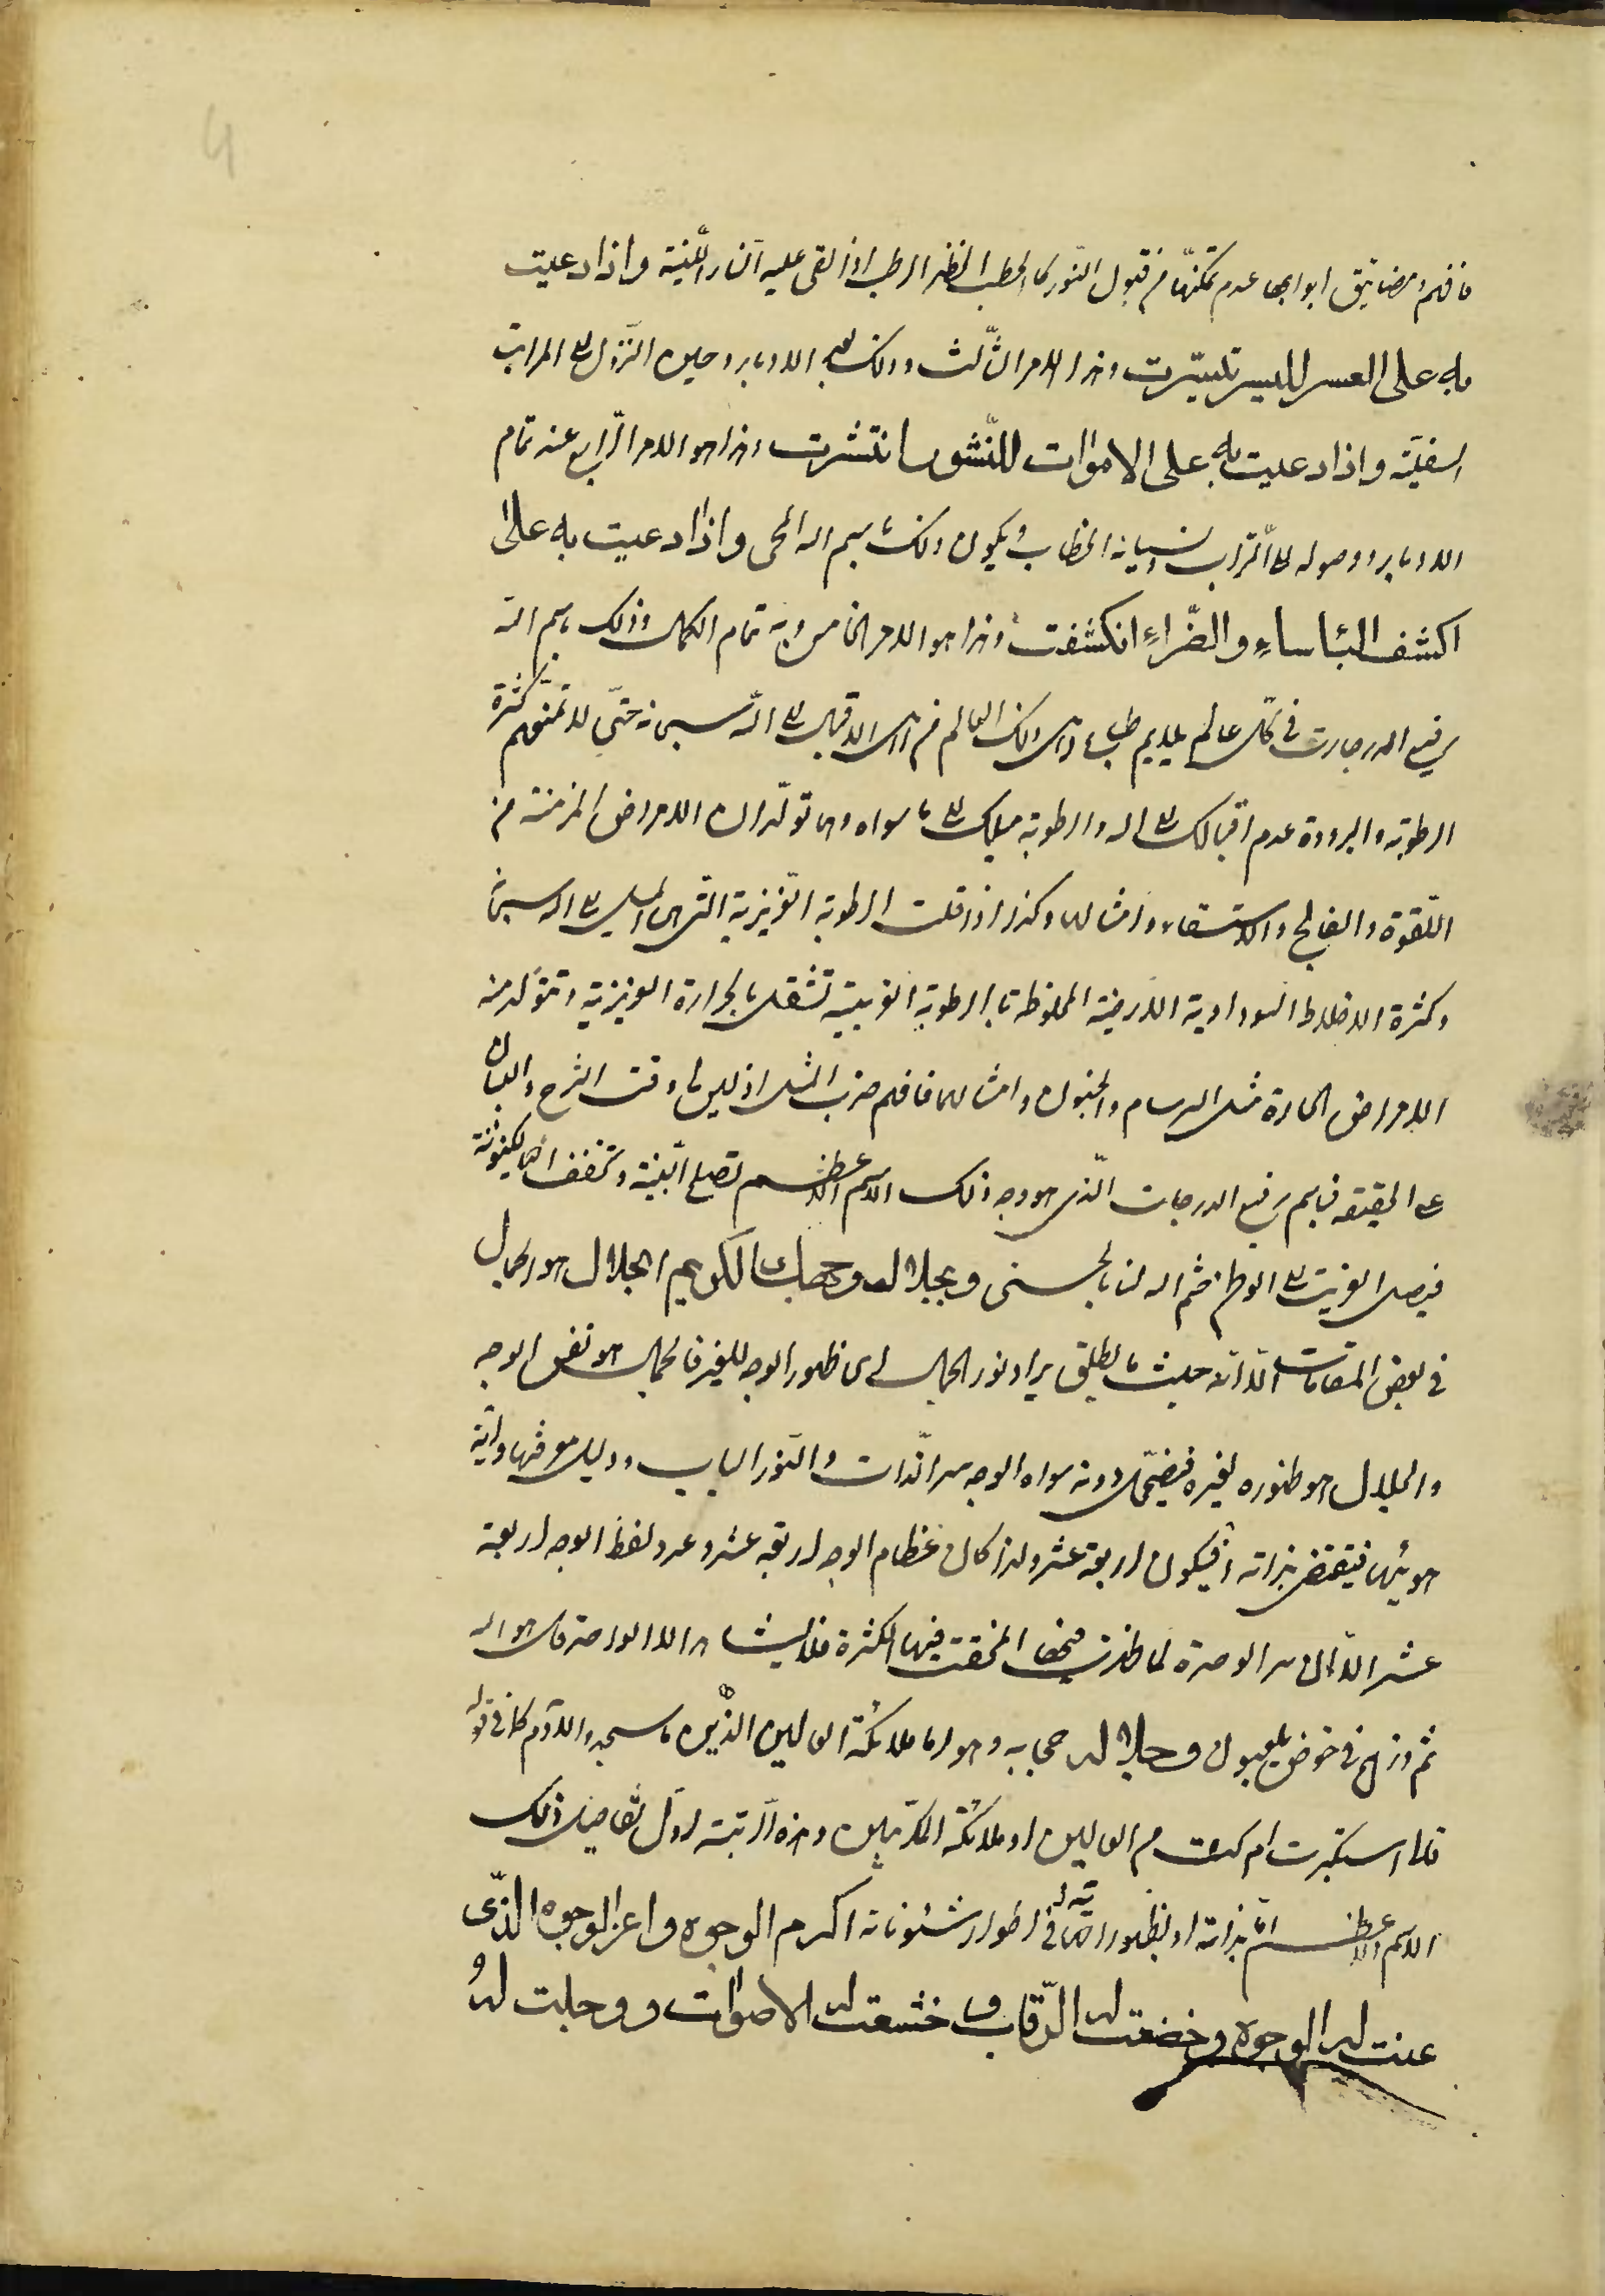 فافهم ومضايق ابوابها عدم تمكنها من قبول النور كالحطب الخضر الرطب اذا القى عليه النار اللينة واذا دعيت
به على العسر لليسر تيسرت وهذا الامر الثالث وذلك الادبار وحين النزول الى المراتب
السفلية واذا دعيت به على الاموات للنشور انتشرت وهذا هو الامر الرابع عند تمام
الادبار ووصوله الى التراب ونسيانه الخطاب ويكون ذلك باسم الله المحى واذا دعيت به على
كشف البأساء والضراء انكشفت وهذا هو الامر الخامس وبه تمام الكمال وذلك باسم الله
رفيع الدرجات في كل عالم يلايم طبايع ذلك العالم من الاقبال الى الله سبحانه حتى لا تمنعهم كثرة
الرطوبة والبرودة عدم اقبالك الى الله والرطوبة ميلك الى ما سواه وهما تولدان الامراض المزمنة من
اللقوة والفالج والاستسقاء وامثالها وكذا اذا قلت الرطوبة الغريزية التي هي الميل الى الله سبحانه
وكثرة الاخلاط السوداوية الارضية المخلوطة بالرطوبة الغريبة تشتعل بالحرارة الغريزية وتتولد منه
الامراض الحارة مثل البرسام والجنون وامثالها فافهم ضرب المثل اذ ليس لي وقت الشرح والبيان
على الحقيقة فباسم رفيع الدرجات الذي هو وجه ذلك الاسم الاعظم تصلح البنية وتخفف الكينونة
فيصل الغريب الى الوطن ختم الله لنا بالحسنى وبجلال وجهك الكريم الجلال هو الجمال
في بعض المقامات الا انه حيث ما يطلق يراد نور الجمال اى ظهور الوجه للغير فالجمال هو نفس الوجه
والجلال هو ظهوره لغيره فيضمحل دونه سواه الوجه سر الذات والنور الباب ودليل معرفتها وآية
هويتها فيقتضى بذاته فيكون اربعة عشر ولذا كان عظام الوجه اربعة عشر وعدد لفظ الوجه اربعة
عشر الدال سر الوحدة لما ظهرت فيها المحقت فيها الكثرة فلا يشاهد الا الواحد قل هو الله
ثم ذرهم في خوضهم يلعبون وجلاله حجابه وهو لها ملائكة العالين الذين ما سجدوا لآدم كما في قوله
تعالى استكبرت ام كنت من العالين او ملائكة الكروبيين وهذه الرتبة اول تفاصيل ذلك
الاسم الاعظم اما بذاته او بظهوراته في اطوار شئوناته اكرم الوجوه واعز الوجوه الذى
عنت له الوجوه وخضعت له الرقاب وخشعت له الاصوات ووجلت له